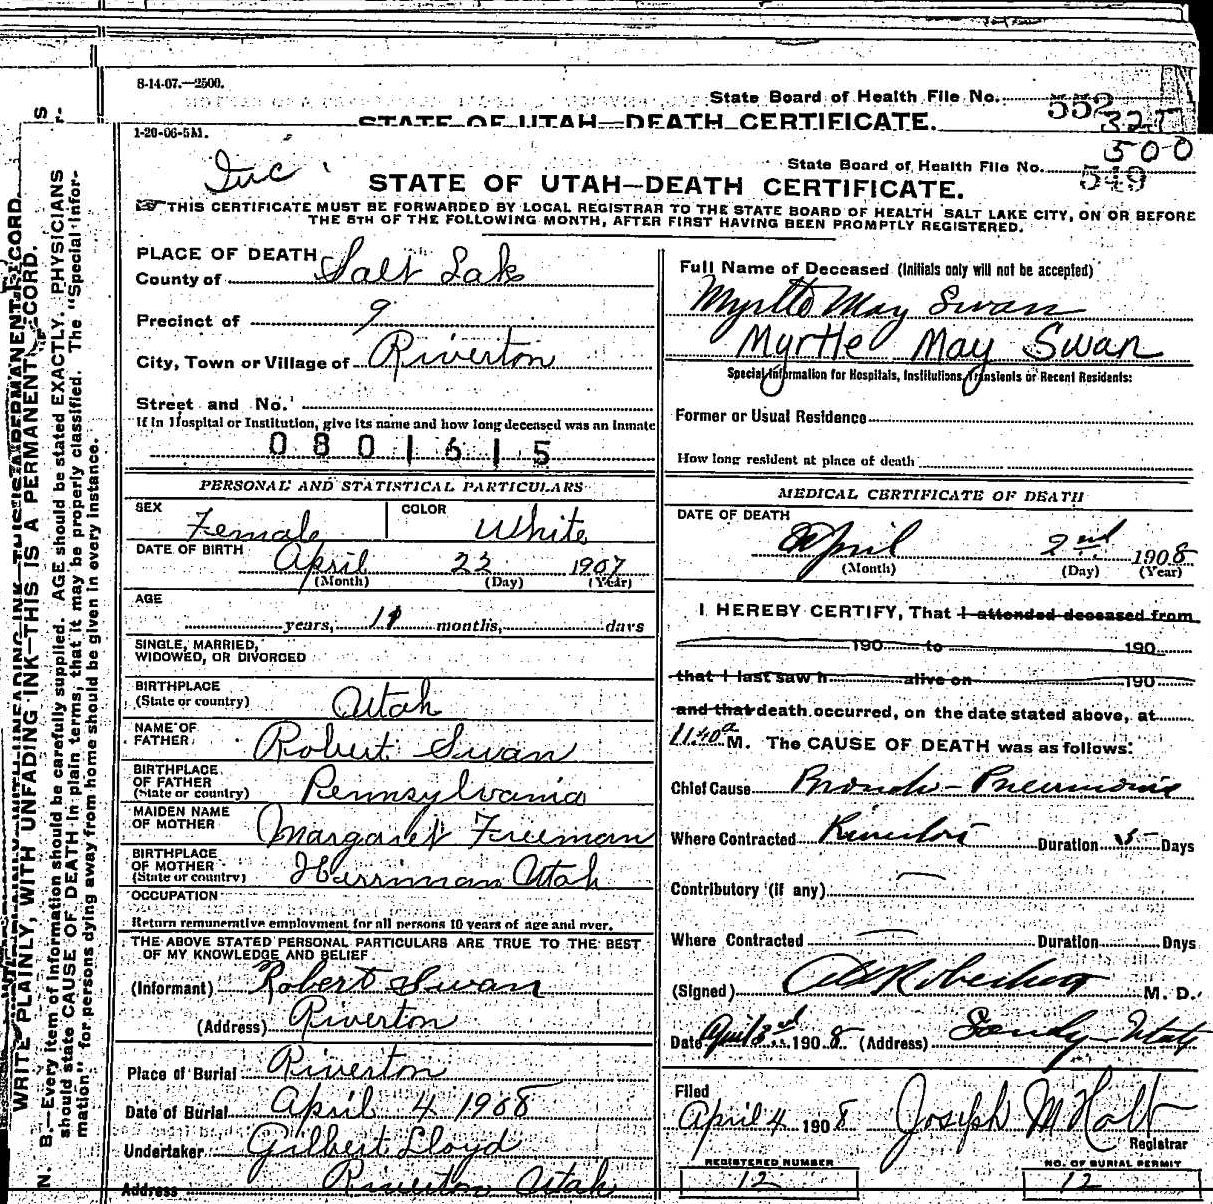 8-14-07.—2500.
State Board of Health File No. 552
325
STATE OF UTAH—DEATH CERTIFICATE.
1-20-06-5M.
500
Inc
State Board of Health File No. 549
STATE OF UTAH—DEATH CERTIFICATE.
THIS CERTIFICATE MUST BE FORWARDED BY LOCAL REGISTRAR TO THE STATE BOARD OF HEALTH SALT LAKE CITY, ON OR BEFORE
THE 5TH OF THE FOLLOWING MONTH, AFTER FIRST HAVING BEEN PROMPTLY REGISTERED.
PLACE OF DEATH
County of Salt Lake
Precinct of 9
City, Town or Village of Riverton
Street and No.
If in Hospital or Institution, give its name and how long deceased was an inmate
0801615
PERSONAL AND STATISTICAL PARTICULARS
SEX Female COLOR White
DATE OF BIRTH April 23 1907
(Month) (Day) (Year)
AGE
years, 11 months, days
SINGLE, MARRIED,
WIDOWED, OR DIVORCED
BIRTHPLACE
(State or country) Utah
NAME OF
FATHER Robert Swan
BIRTHPLACE
OF FATHER
(State or country) Pennsylvania
MAIDEN NAME
OF MOTHER Margaret Freeman
BIRTHPLACE
OF MOTHER
(State or country) Herriman Utah
OCCUPATION
Return remunerative employment for all persons 10 years of age and over.
THE ABOVE STATED PERSONAL PARTICULARS ARE TRUE TO THE BEST
OF MY KNOWLEDGE AND BELIEF
(Informant) Robert Swan
(Address) Riverton
Place of Burial Riverton
Date of Burial April 4 1908
Undertaker Gilbert Lloyd
Address Riverton Utah
Full Name of Deceased (Initials only will not be accepted)
Myrtle May Swan
Myrtle May Swan
Special Information for Hospitals, Institutions, Transients or Recent Residents:
Former or Usual Residence
How long resident at place of death
MEDICAL CERTIFICATE OF DEATH
DATE OF DEATH
April 2nd 1908
(Month) (Day) (Year)
I HEREBY CERTIFY, That I attended deceased from
190 to 190
that I last saw h alive on 190
and that death occurred, on the date stated above, at
11.40 a M. The CAUSE OF DEATH was as follows:
Chief Cause Broncho-Pneumonia
Where Contracted Riverton Duration 5 Days
Contributory (if any)
Where Contracted Duration Days
(Signed) M. D.
Date April 3rd 1908 (Address) Sandy Utah
Filed
April 4 1908 Joseph M Holt
Registrar
REGISTERED NUMBER
12
NO. OF BURIAL PERMIT
12
WRITE PLAINLY, WITH UNFADING INK—THIS IS A PERMANENT RECORD.
N. B.—Every item of information should be carefully supplied. AGE should be stated EXACTLY. PHYSICIANS
should state CAUSE OF DEATH in plain terms, that it may be properly classified. The "Special Infor-
mation" for persons dying away from home should be given in every instance.